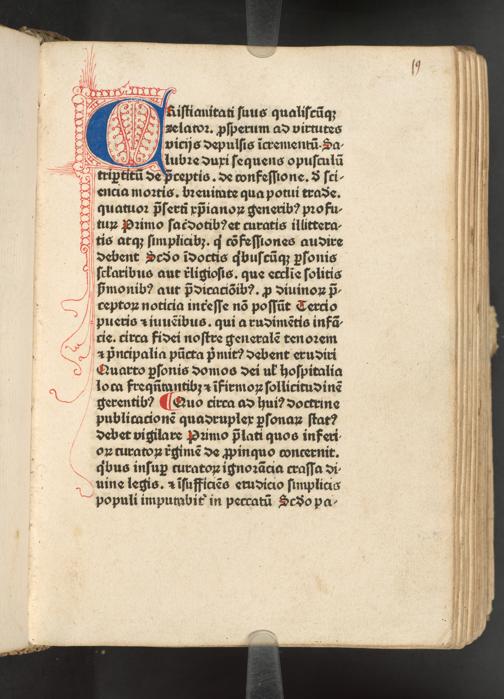 19
CRistianitati suus qualiscūq
zelator. ꝓsperum ad virtutes
vicijs depulsis īcrementū. Sa-
lubre duxi sequens opusculū
tripertitū de p̄ceptis. de confessione. ⁊ sci-
encia mortis. breuitate qua potui trade.
quatuor p̄serti xp̄ianoꝝ generibꝰ profu-
tuꝝ Primo sac̄dotibꝰ et curatis illittera-
tis atqꝫ simplicibꝫ. q̇ cōfessiones audire
debent Scd̄o īdoctis q̇buscūqꝫ ꝑsonis
scl̄aribus aut r̄ligiosis. que eccl̄ie solitis
p̄monibꝰ aut p̄dicacōibꝰ. ꝓ diuinoꝝ p̄-
ceptoꝝ noticia int̄esse nō possūt Tercio
pueris ⁊ iuuēibus. qui a rudimētis infā-
cie. circa fidei nostre generalē tenorem
⁊ p̄ncipalia pūcta p̄mitꝰ debent erudiri
Quarto ꝑsonis domos dei ul̓ hospitalia
loca freqūtantibꝫ ⁊ īfirmoꝝ sollicitudinē
gerentibꝰ ¶ Quo circa ad huiꝰ doctrine
publicationē quadruplex ꝑsonaꝝ statꝰ
debet vigilare Primo p̄lati quos inferi-
oꝝ curatoꝝ r̄gimē de ꝓpinquo concernit.
q̇bus insuꝑ curatoꝝ ignorācia crassa di-
uine legis. ⁊ īsufficiēs erudicio simplicis
populi imputabit᷑ in peccatū Scd̄o pa-